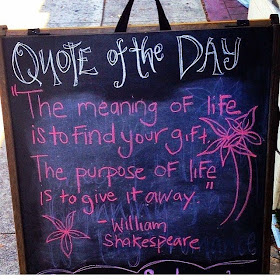 QUOTE of the DAY
"The meaning of life
is to find your gift.
The purpose of life
is to give it away."
- William
Shakespeare